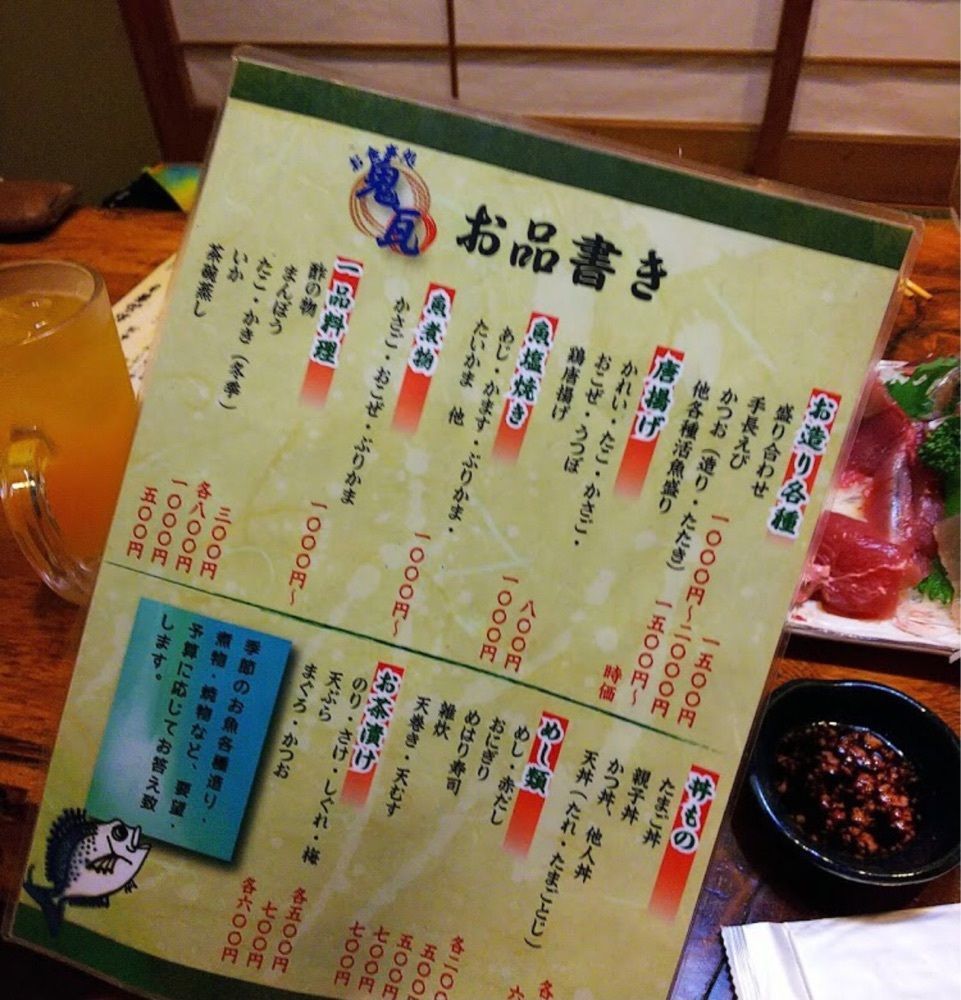 お食事処
鬼瓦
お品書き
お造り各種
盛り合わせ 一五〇〇円
手長えび 一〇〇〇円～二〇〇〇円
かつお（造り・たたき） 一五〇〇円～
他各種活魚盛り 時価
唐揚げ
かれい・たこ・かさご・
おこぜ・うつぼ 一〇〇〇円～
鶏唐揚げ 八〇〇円
魚塩焼き
あじ・かます・ぶりかま・
たいかま 他 一〇〇〇円～
魚煮物
かさご・おこぜ・ぶりかま 一〇〇〇円～
一品料理
酢の物 三〇〇円
まんぼう 各八〇〇円
たこ・かき（冬季）
いか 一〇〇〇円
茶碗蒸し 五〇〇円
丼もの
たまご丼
親子丼
かつ丼、他人丼
天丼（たれ・たまごとじ）
めし類
めし・赤だし 各二〇
おにぎり 五〇〇
めはり寿司 五〇〇
雑炊 七〇〇
天巻き・天むす 七〇〇
お茶漬け
のり・さけ・しぐれ・梅 各五〇〇円
天ぷら 七〇〇円
まぐろ・かつお 各六〇〇円
季節のお魚各種造り・
煮物・焼物など、要望・
予算に応じてお答え致
します。